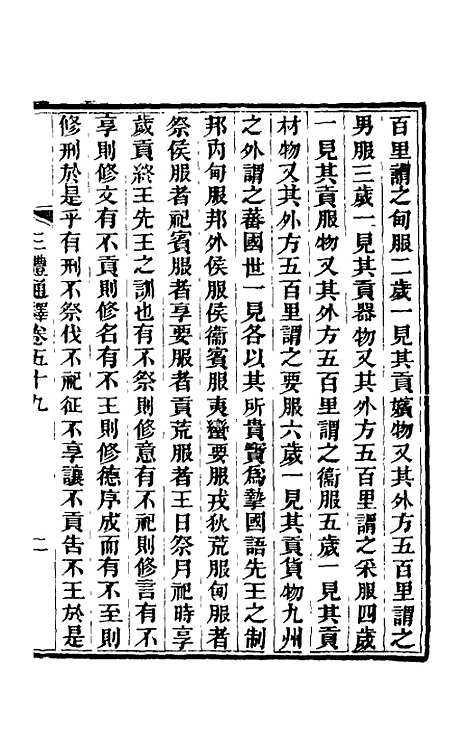 百里謂之甸服二歲一見其貢嬪物又其外方五百里謂之
男服三歲一見其貢器物又其外方五百里謂之采服四歲
一見其貢服物又其外方五百里謂之衞服五歲一見其貢
材物又其外方五百里謂之要服六歲一見其貢貨物九州
之外謂之蕃國世一見各以其所貴寶爲摯國語先王之制
邦內甸服邦外侯服侯衞賓服夷蠻要服戎狄荒服甸服者
祭侯服者祀賓服者享要服者貢荒服者王日祭月祀時享
歲貢終王先王之訓也有不祭則修意有不祀則修言有不
享則修文有不貢則修名有不王則修德序成而有不至則
修刑於是乎有刑不祭伐不祀征不享讓不貢告不王於是
三禮通釋卷五十九 二